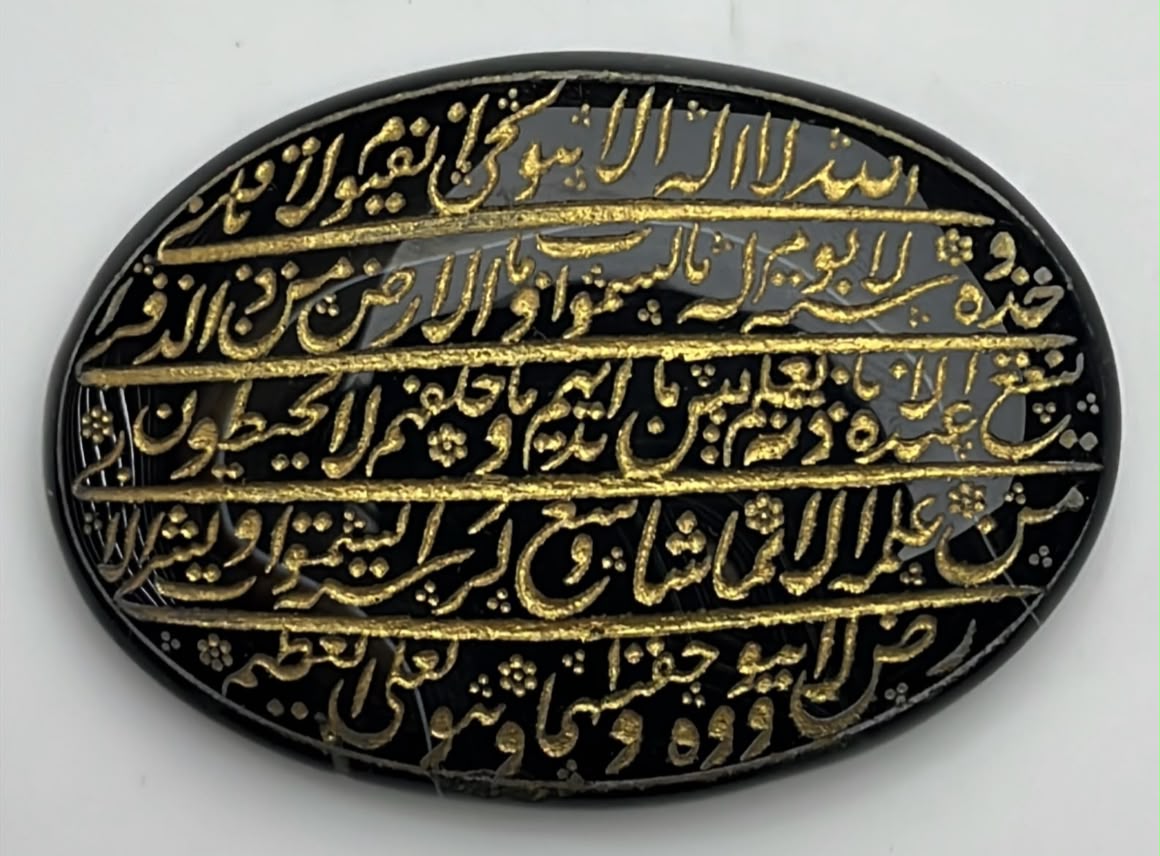 الله لا اله الا هو الحی القیوم لا تا
خذه سنة و لا نوم له ما فی السموات و ما فی الارض من ذا الذ
ی یشفع عنده الا باذنه یعلم ما بین ایدیهم و ما خلفهم و لا یحیطون
بشی من علمه الا بما شا وسع کرسیه السموات و الار
ض و لا یوده حفظهما و هو العلی العظیم